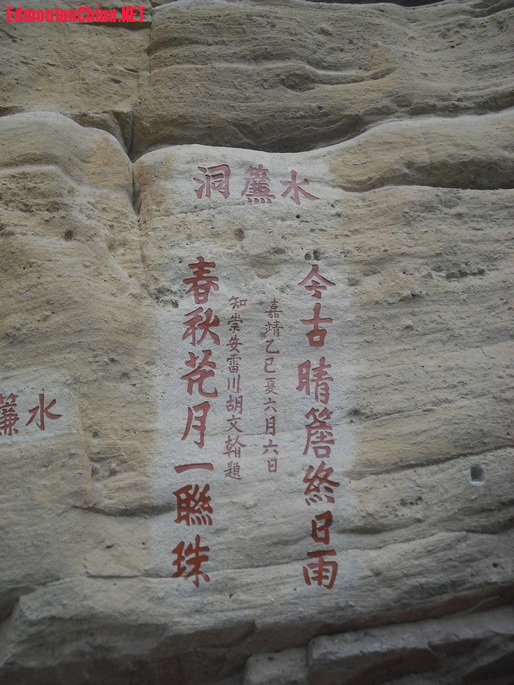 EdmontonChina.NET
水簾洞
今古晴簷終日雨
嘉靖乙巳夏六月六日
知崇安雷川胡文翰題
春秋花月一聯珠
水簾